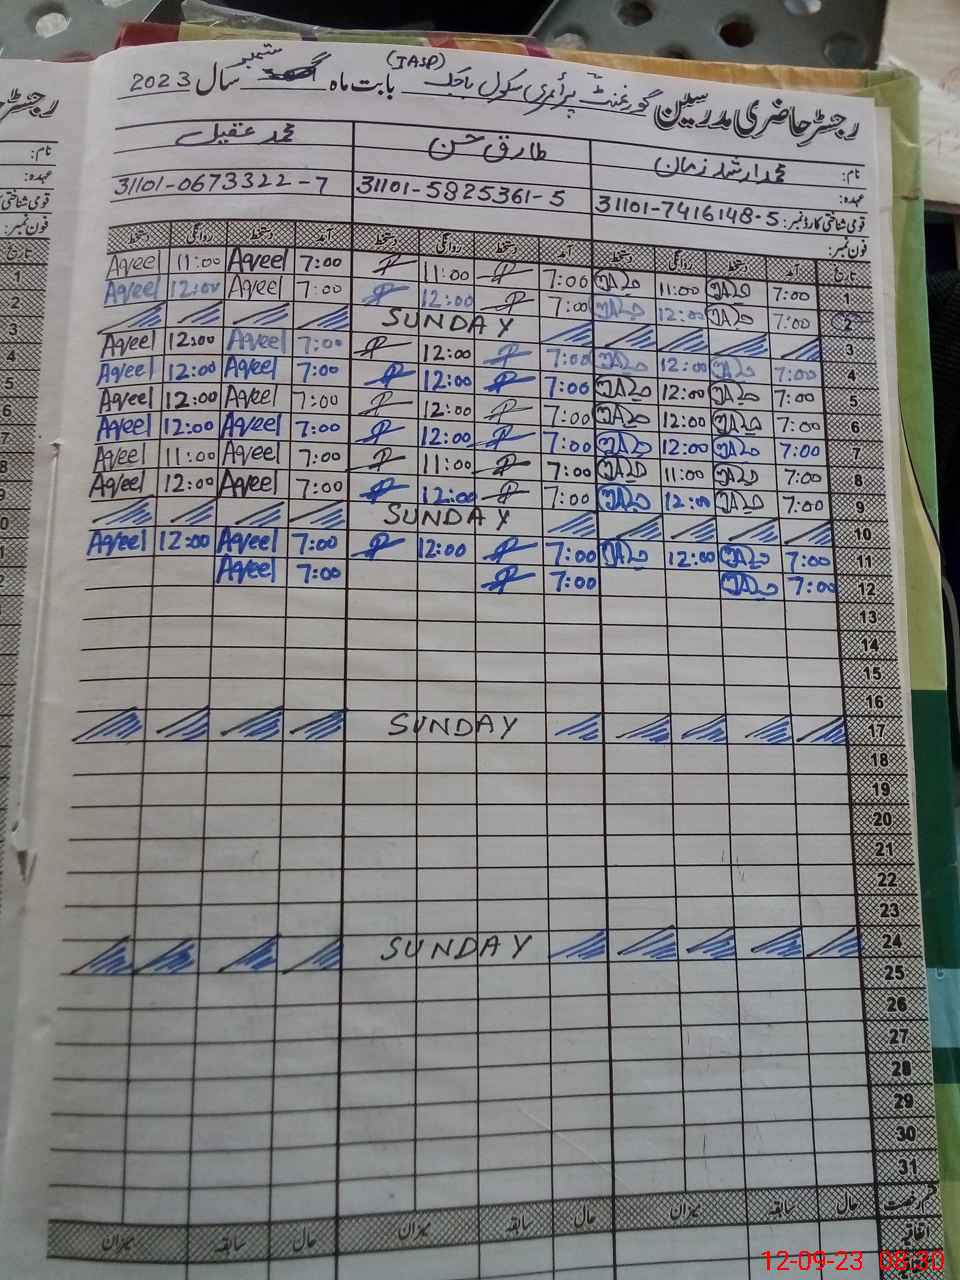 رجسٹر حاضری مدرسین گورنمنٹ پرائمری سکول (IASP) بابت ماہ ستمبر سال 2023
نام: محمد ارشد زمان طارق حسن محمد عقیل
عہدہ:
قومی شناختی کارڈ نمبر: 31101-7416148-5 31101-5825361-5 31101-0673322-7
فون نمبر:
تاریخ آمد دستخط روانگی دستخط آمد دستخط روانگی دستخط آمد دستخط روانگی دستخط
1 7:00 11:00 7:00 11:00 7:00 Aqeel 11:00 Aqeel
2 7:00 12:00 7:00 12:00 7:00 Aqeel 12:00 Aqeel
3 SUNDAY
4 7:00 12:00 7:00 12:00 7:00 Aqeel 12:00 Aqeel
5 7:00 12:00 7:00 12:00 7:00 Aqeel 12:00 Aqeel
6 7:00 12:00 7:00 12:00 7:00 Aqeel 12:00 Aqeel
7 7:00 12:00 7:00 12:00 7:00 Aqeel 12:00 Aqeel
8 7:00 11:00 7:00 11:00 7:00 Aqeel 11:00 Aqeel
9 7:00 12:00 7:00 12:00 7:00 Aqeel 12:00 Aqeel
10 SUNDAY
11 7:00 12:00 7:00 12:00 7:00 Aqeel 12:00 Aqeel
12 7:00 7:00 7:00 Aqeel
13
14
15
16
17 SUNDAY
18
19
20
21
22
23
24 SUNDAY
25
26
27
28
29
30
31
قسم رخصت حال سابقہ میزان حال سابقہ میزان حال سابقہ میزان
اتفاقیہ
12-09-23 08:30